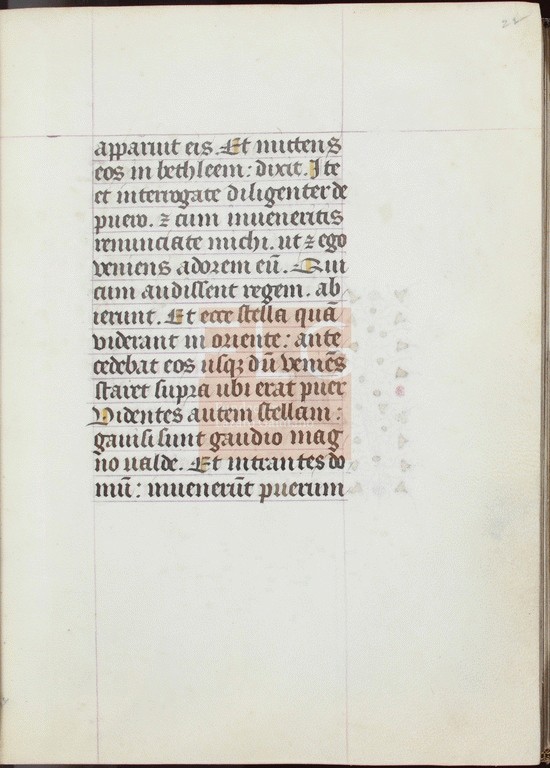 22
apparuit eis. Et mittens
eos in bethleem: dixit. Ite
et interrogate diligenter de
puero. ⁊ cum inueneritis
renunciate michi. ut ⁊ ego
veniens adorem eū. Qui
cum audissent regem. ab
ierunt. Et ecce stella quā
viderant in oriente: ante
cedebat eos usqꝫ dū veniēs
staret supra ubi erat puer
Videntes autem stellam:
gauisi sunt gaudio mag
no ualde. Et intrantes do
mū: inuenerūt puerum